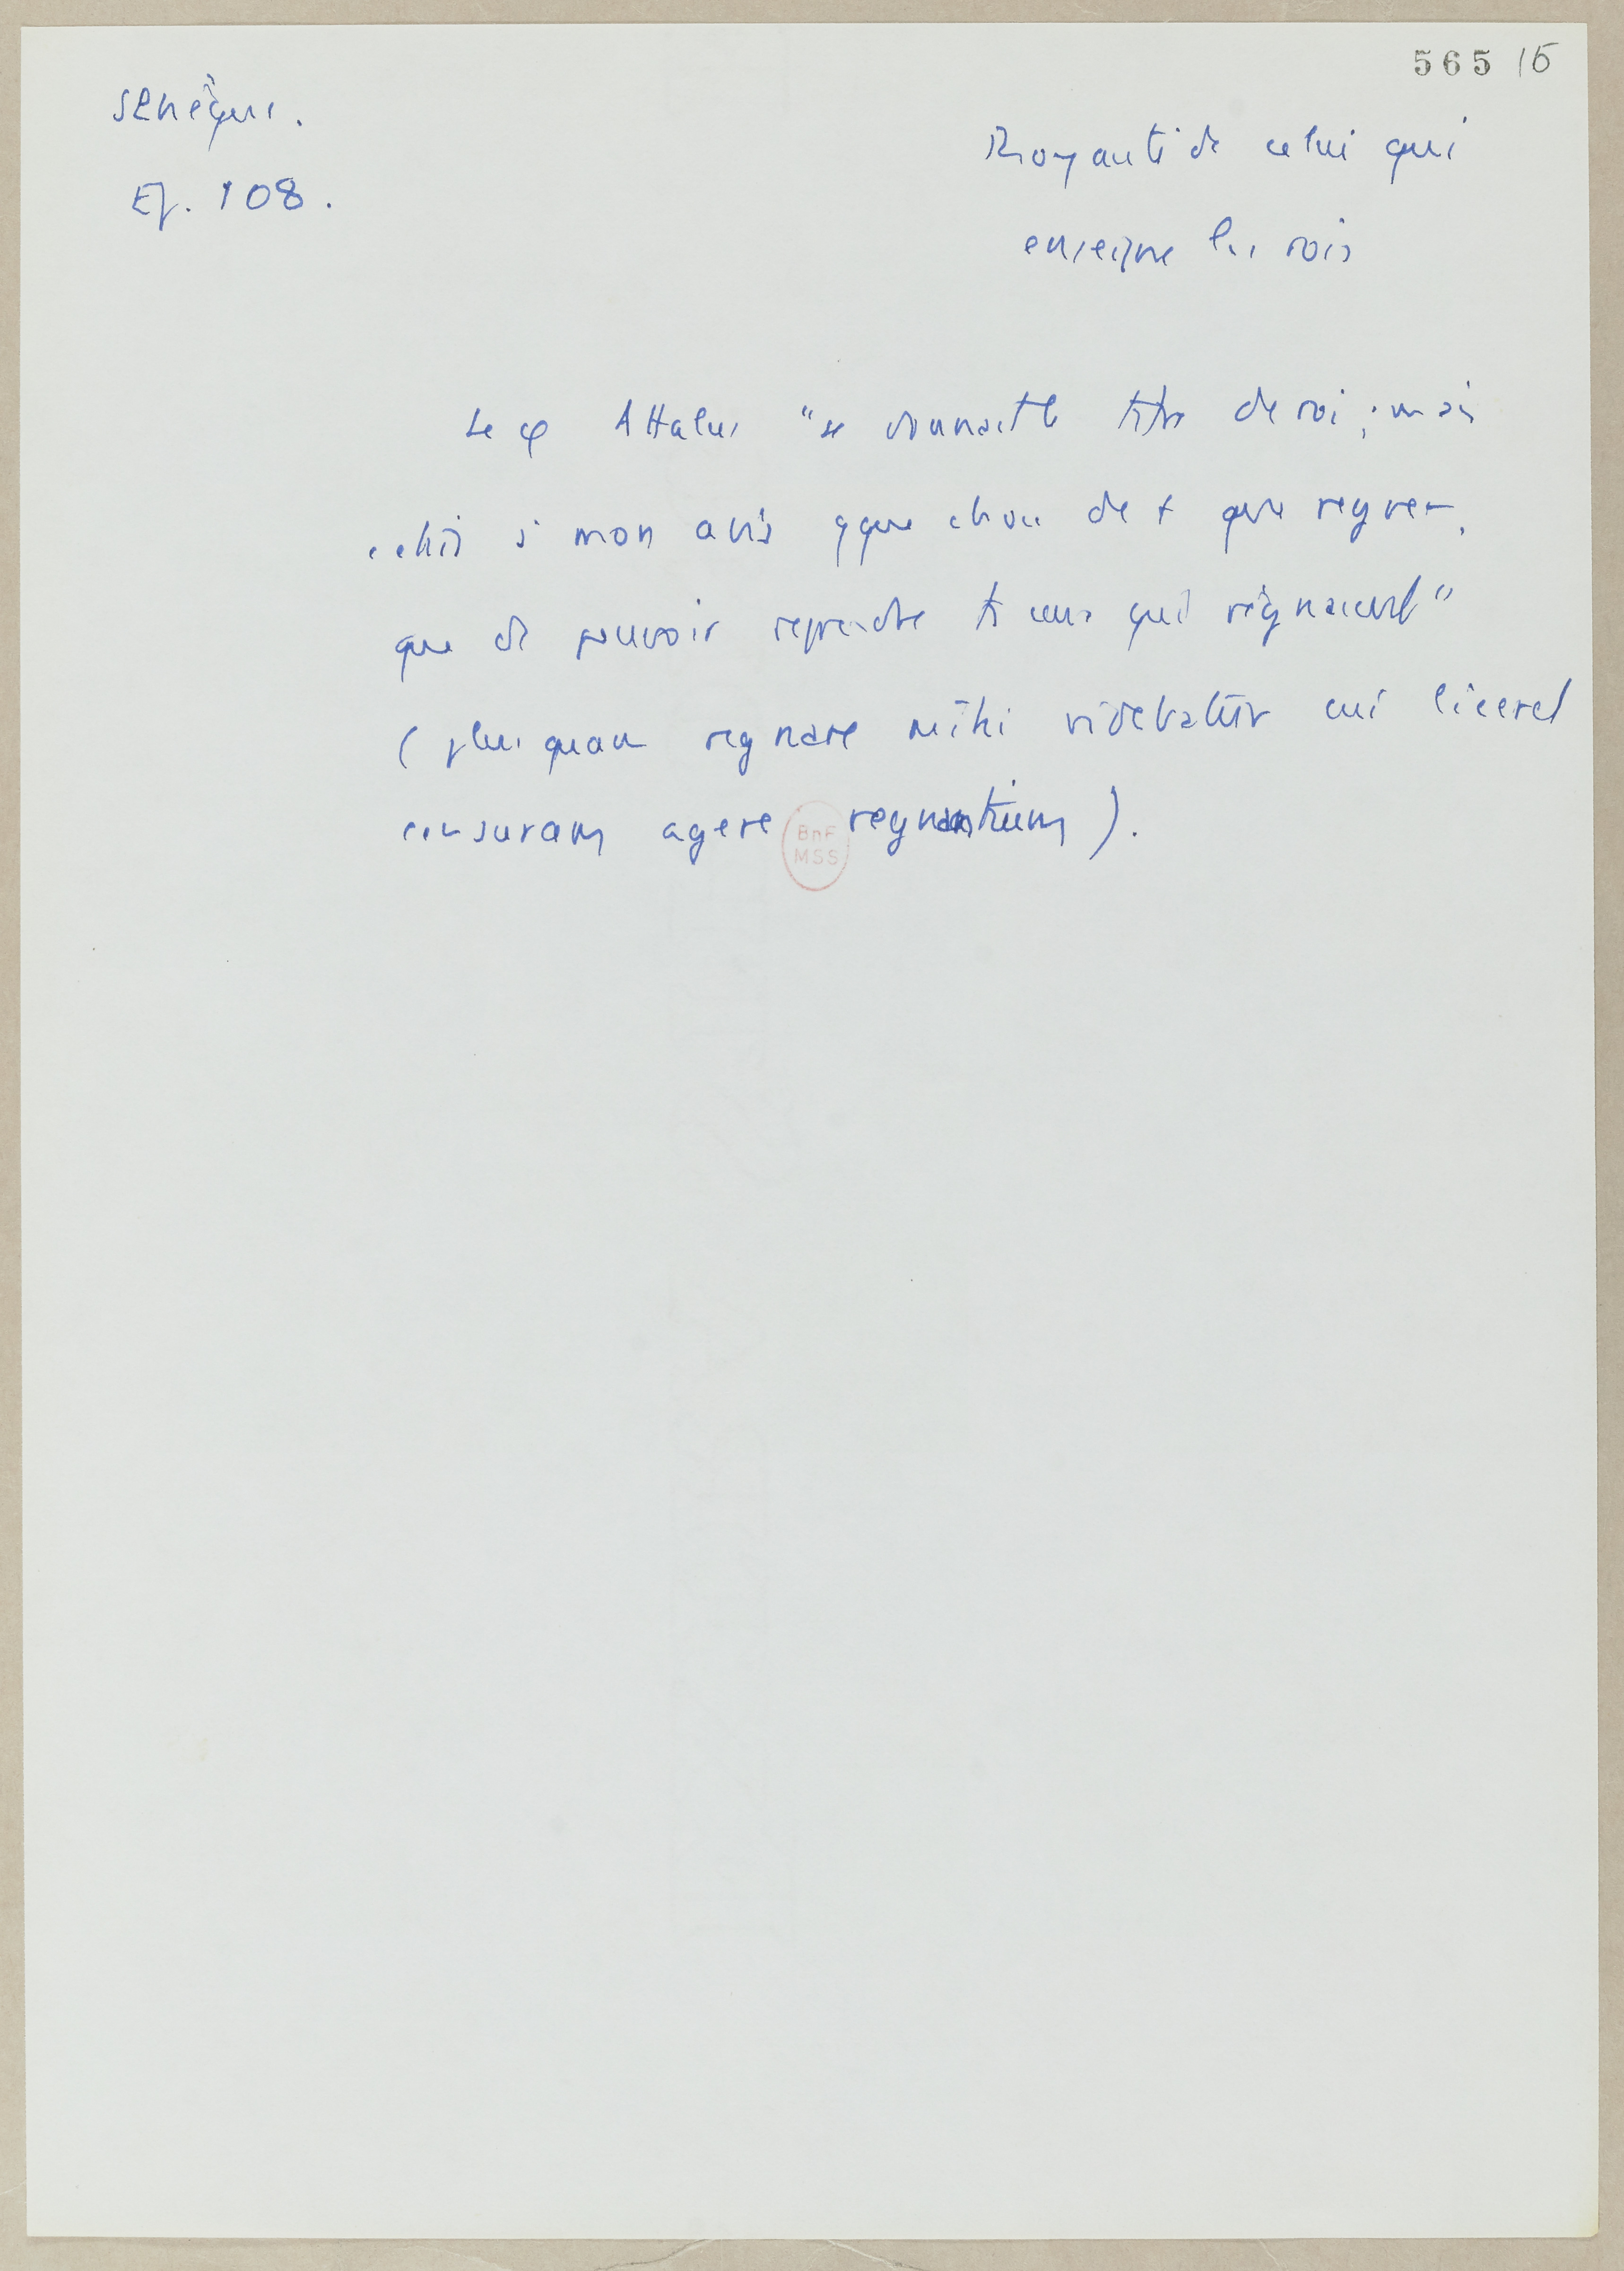 565 15
Sénèque.
Ep. 108.
Royauté de celui qui
enseigne les rois
Le φ Attalus "se donnait le titre de roi ; mais
c'était à mon avis qque chose de + que régner,
que de pouvoir reprendre ts ceux qui régnaient"
(plus quam regnare mihi videbatur cui liceret
censuram agere regnantium).
BnF
MSS